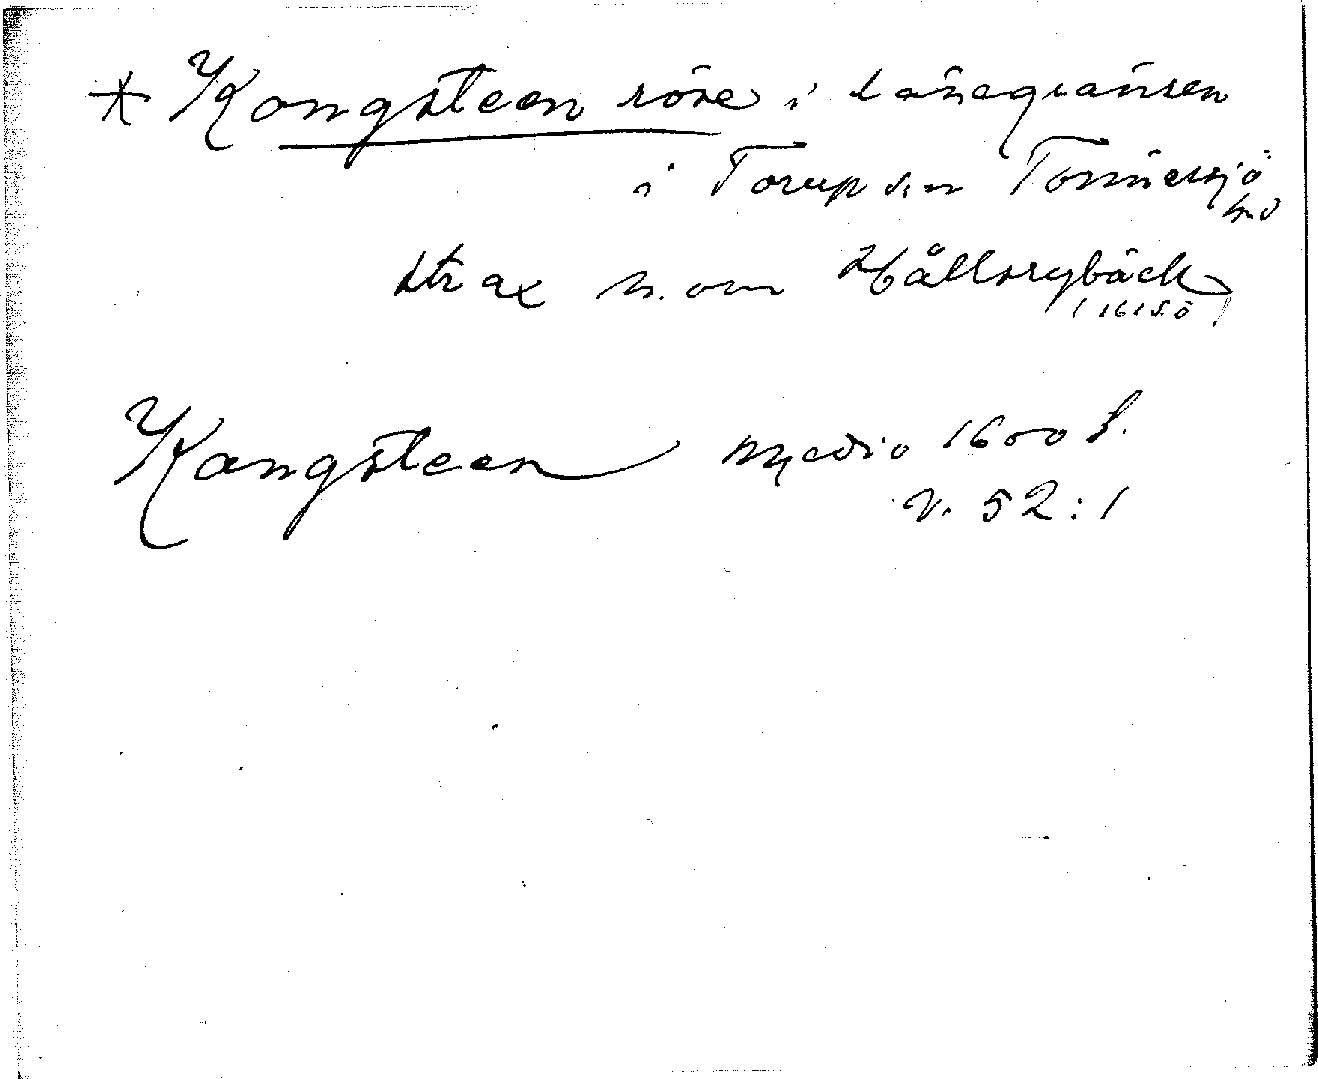 * Kongsteen röse i länsgränsen
i Torup s:n Tönnersjö hd
strax n. om Hållsrybäck
Kongsteen medio 1600 t.
v. 52:1